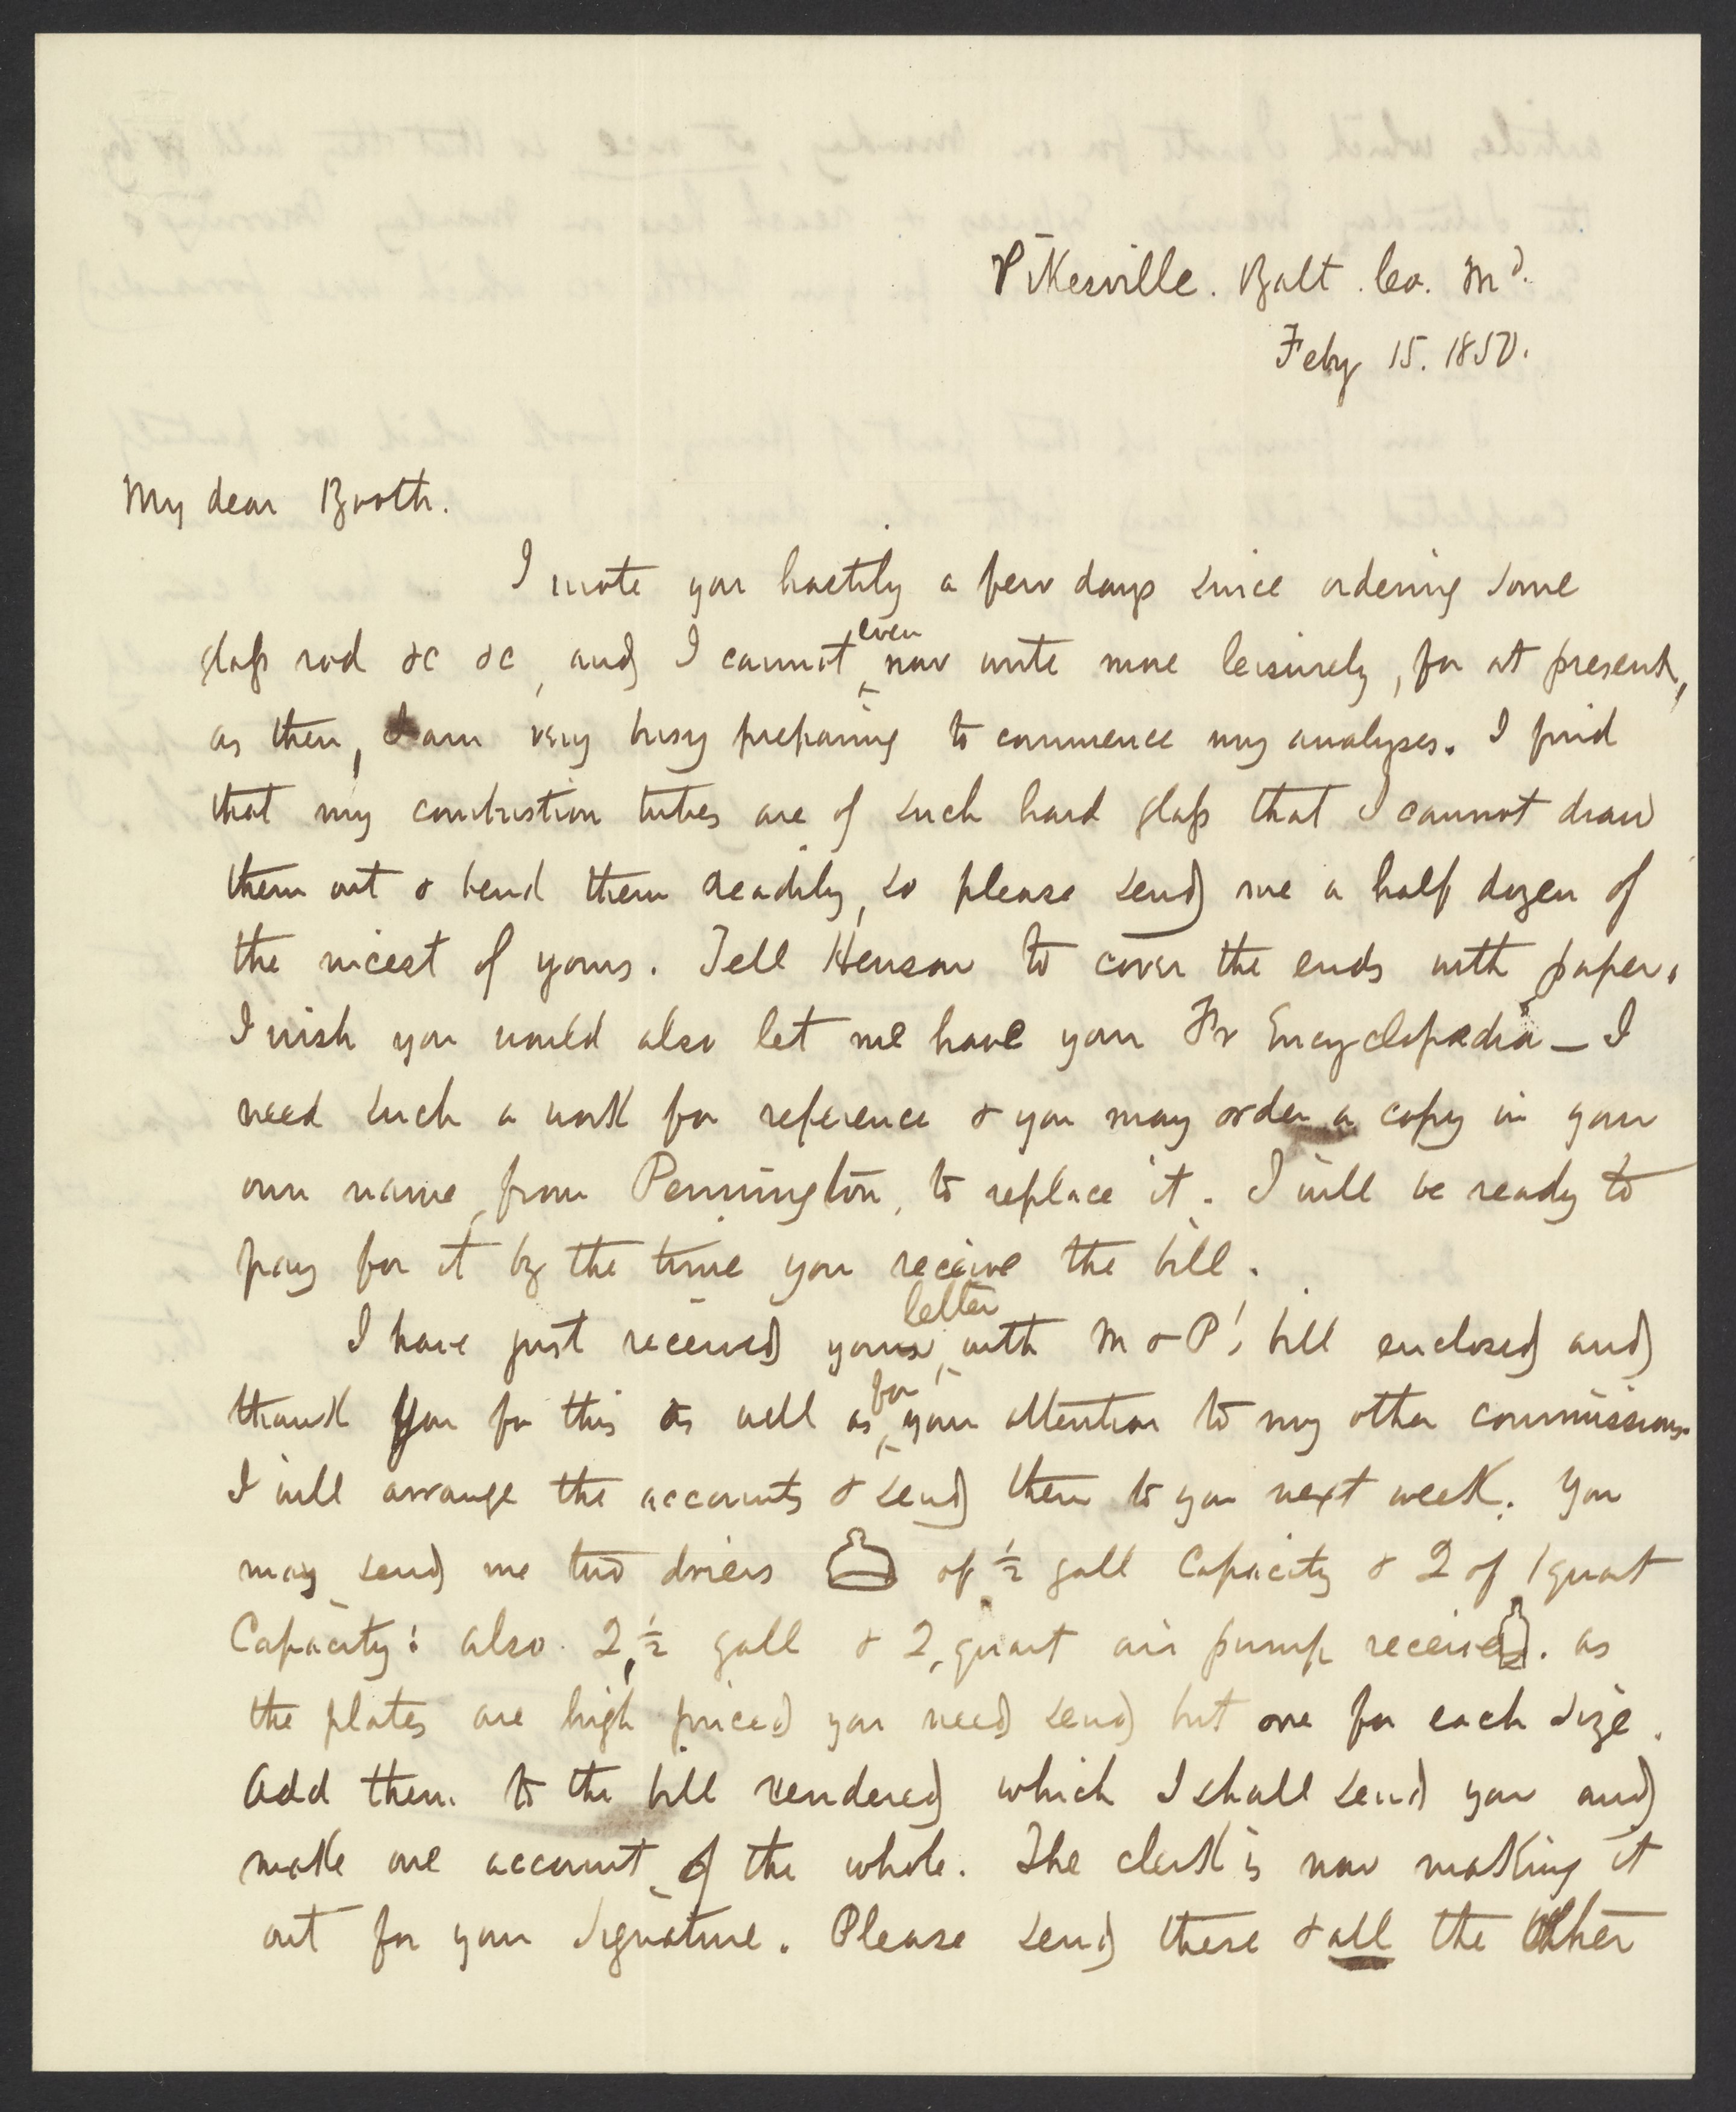 Pikesville. Balt. Co. Md.
Feby 15. 1850.
My dear Booth.
I wrote you hastily a few days since ordering some
glass rod &c &c, and I cannot even now write more leisurely, for at present,
as then, I am very busy preparing to commence my analyses. I find
that my combustion tubes are of such hard glass that I cannot draw
them out & bend them readily, so please send me a half dozen of
the nicest of yours. Tell Henson to cover the ends with paper.
I wish you would also let me have your Fr Encyclopædia — I
need such a work for reference & you may order a copy in your
own name, from Pennington, to replace it. I will be ready to
pay for it by the time you receive the bill.
I have just received your letter with M & P's bill enclosed and
thank you for this as well as for your attention to my other commissions.
I will arrange the accounts & send them to you next week. You
may send me two driers of ½ gall Capacity & 2 of 1 quart
Capacity: also 2, ½ gall & 2, quart air pump receivers. as
the plates are high priced you need send but one for each size.
Add them to the bill rendered which I shall send you and
make one account of the whole. The clerk is now making it
out for your signature. Please send these & all the other